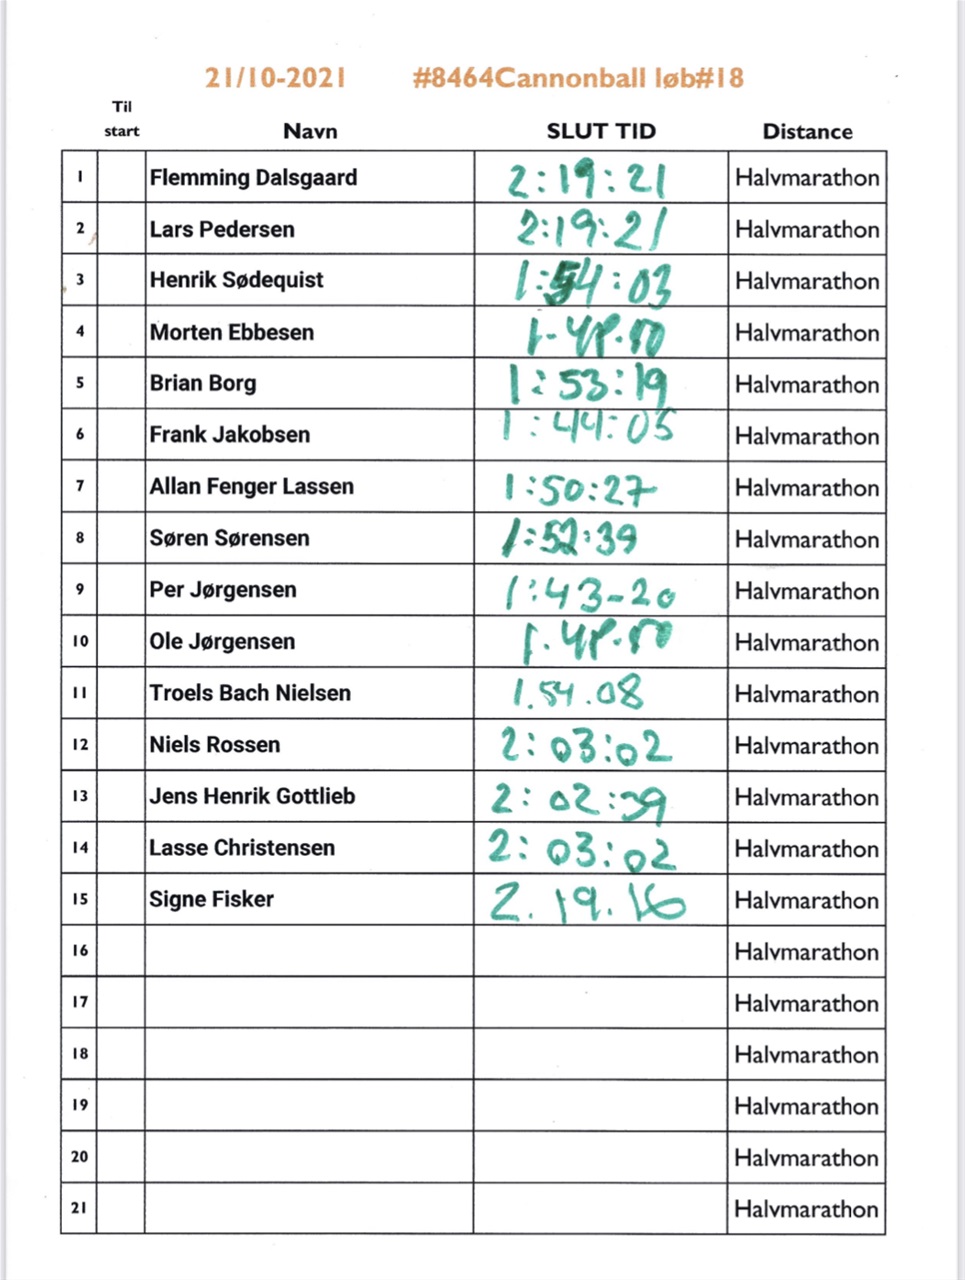 21/10-2021 #8464Cannonball løb#18
Til start Navn SLUT TID Distance
1 Flemming Dalsgaard 2:19:21 Halvmarathon
2 Lars Pedersen 2:19:21 Halvmarathon
3 Henrik Sødequist 1:54:03 Halvmarathon
4 Morten Ebbesen Halvmarathon
5 Brian Borg 1:53:19 Halvmarathon
6 Frank Jakobsen 1:44:05 Halvmarathon
7 Allan Fenger Lassen 1:50:27 Halvmarathon
8 Søren Sørensen 1:52:39 Halvmarathon
9 Per Jørgensen 1:43-20 Halvmarathon
10 Ole Jørgensen Halvmarathon
11 Troels Bach Nielsen 1.54.08 Halvmarathon
12 Niels Rossen 2:03:02 Halvmarathon
13 Jens Henrik Gottlieb 2:02:39 Halvmarathon
14 Lasse Christensen 2:03:02 Halvmarathon
15 Signe Fisker 2.19.16 Halvmarathon
16 Halvmarathon
17 Halvmarathon
18 Halvmarathon
19 Halvmarathon
20 Halvmarathon
21 Halvmarathon